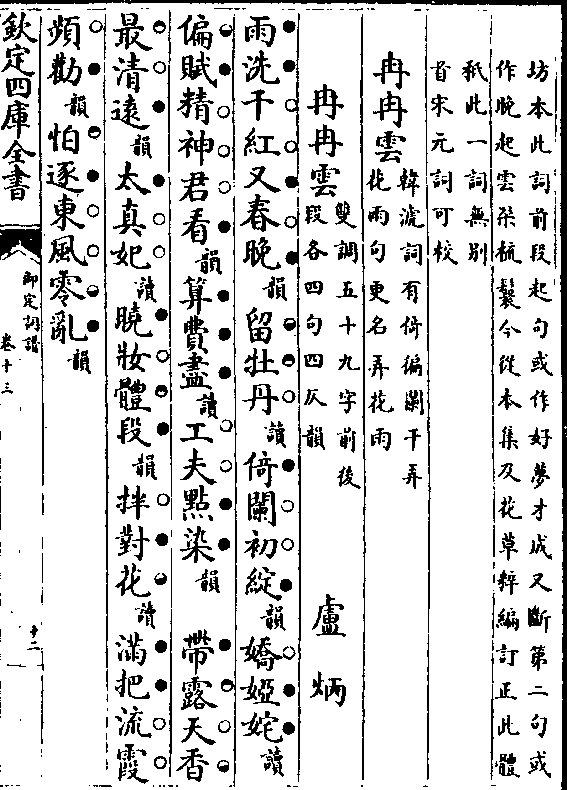 坊本此詞前段起句或作好夢才成又斷第二句或
作晚起雲朶梳鬟今從本集及花草粹編訂正此體
秖此一詞無別
首宋元詞可校
冉冉雲
韓淲詞有倚徧闌干弄
花雨句更名弄花雨
冉冉雲
雙調五十九字前後
段各四句四仄韻
盧炳
雨洗千紅又春晚韻留牡丹讀倚闌初綻韻嬌婭姹讀
偏賦精神君看韻算費盡讀工夫點染韻 帶露天香
最清遠韻太真妃讀曉妝體段韻拌對花讀滿把流霞
頻勸韻怕逐東風零亂韻
欽定四庫全書
御定詞譜
卷十三
十二